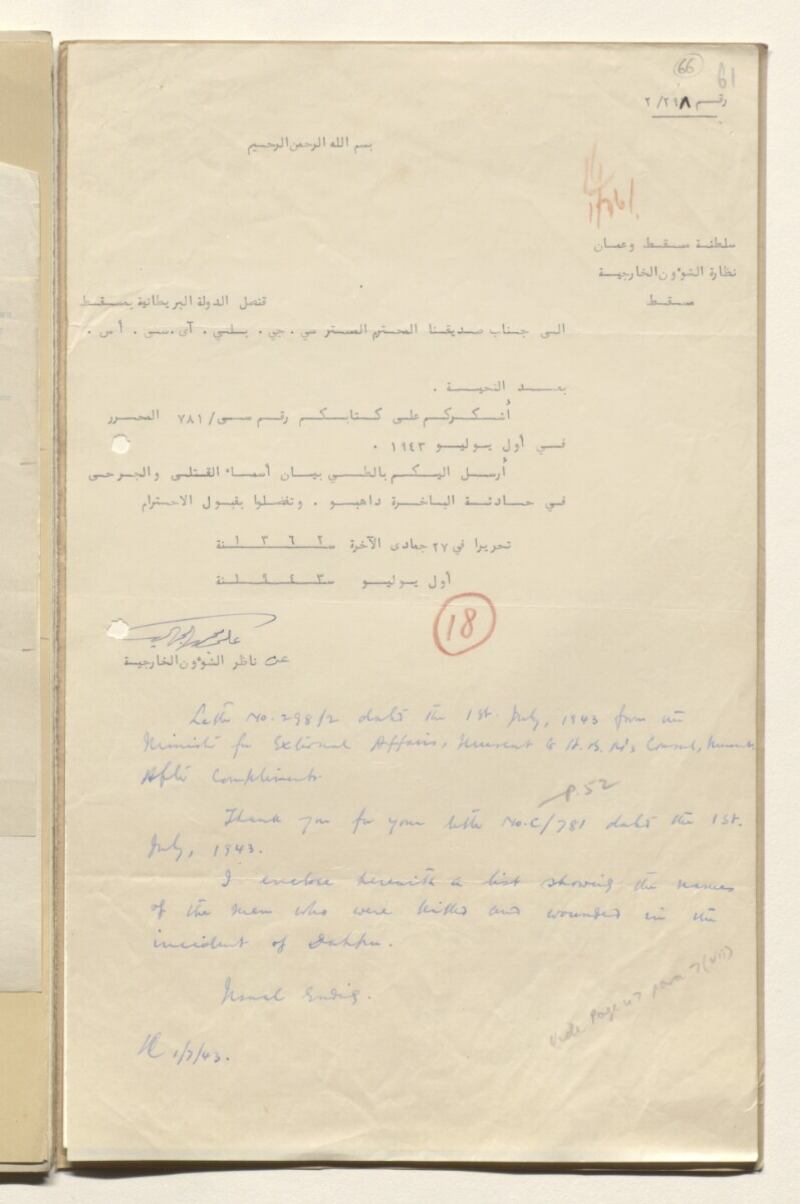 66
61
رقم ٢/٢٩٨
بسم الله الرحمن الرحيم
سلطنة مسقط وعمان
نظارة الشؤون الخارجية
مسقط
قنصل الدولة البريطانية بمسقط
الى جناب صديقنا المحترم المستر سي . جي . بيلي . آى . سى . أس .
بعد التحية .
أشكركم على كتابكم رقم سى/ ٧٨١ المحرر
في أول يوليو ١٩٤٣ .
أرسل اليكم بالطي بيان أسماء القتلى والجرحى
في حادثة الباخرة داهبو . وتفضلوا بقبول الاحترام
تحريرا في ٢٧ جمادى الآخرة سنة ١٣٦٢
أول يوليو سنة ١٩٤٣
18
عن ناظر الشؤون الخارجية
Letter No. 298/2 dated the 1st. July, 1943 from the
Minister for External Affairs, Muscat to H. B. M's Consul, Muscat.
After Compliments
p. 52
Thank you for your letter No. C/781 dated the 1st.
July, 1943.
I enclose herewith a list showing the names
of the men who were killed and wounded in the
incident of Dahpu.
Usual Ending.
Vide page 47 para 7(vii)
1/7/43.